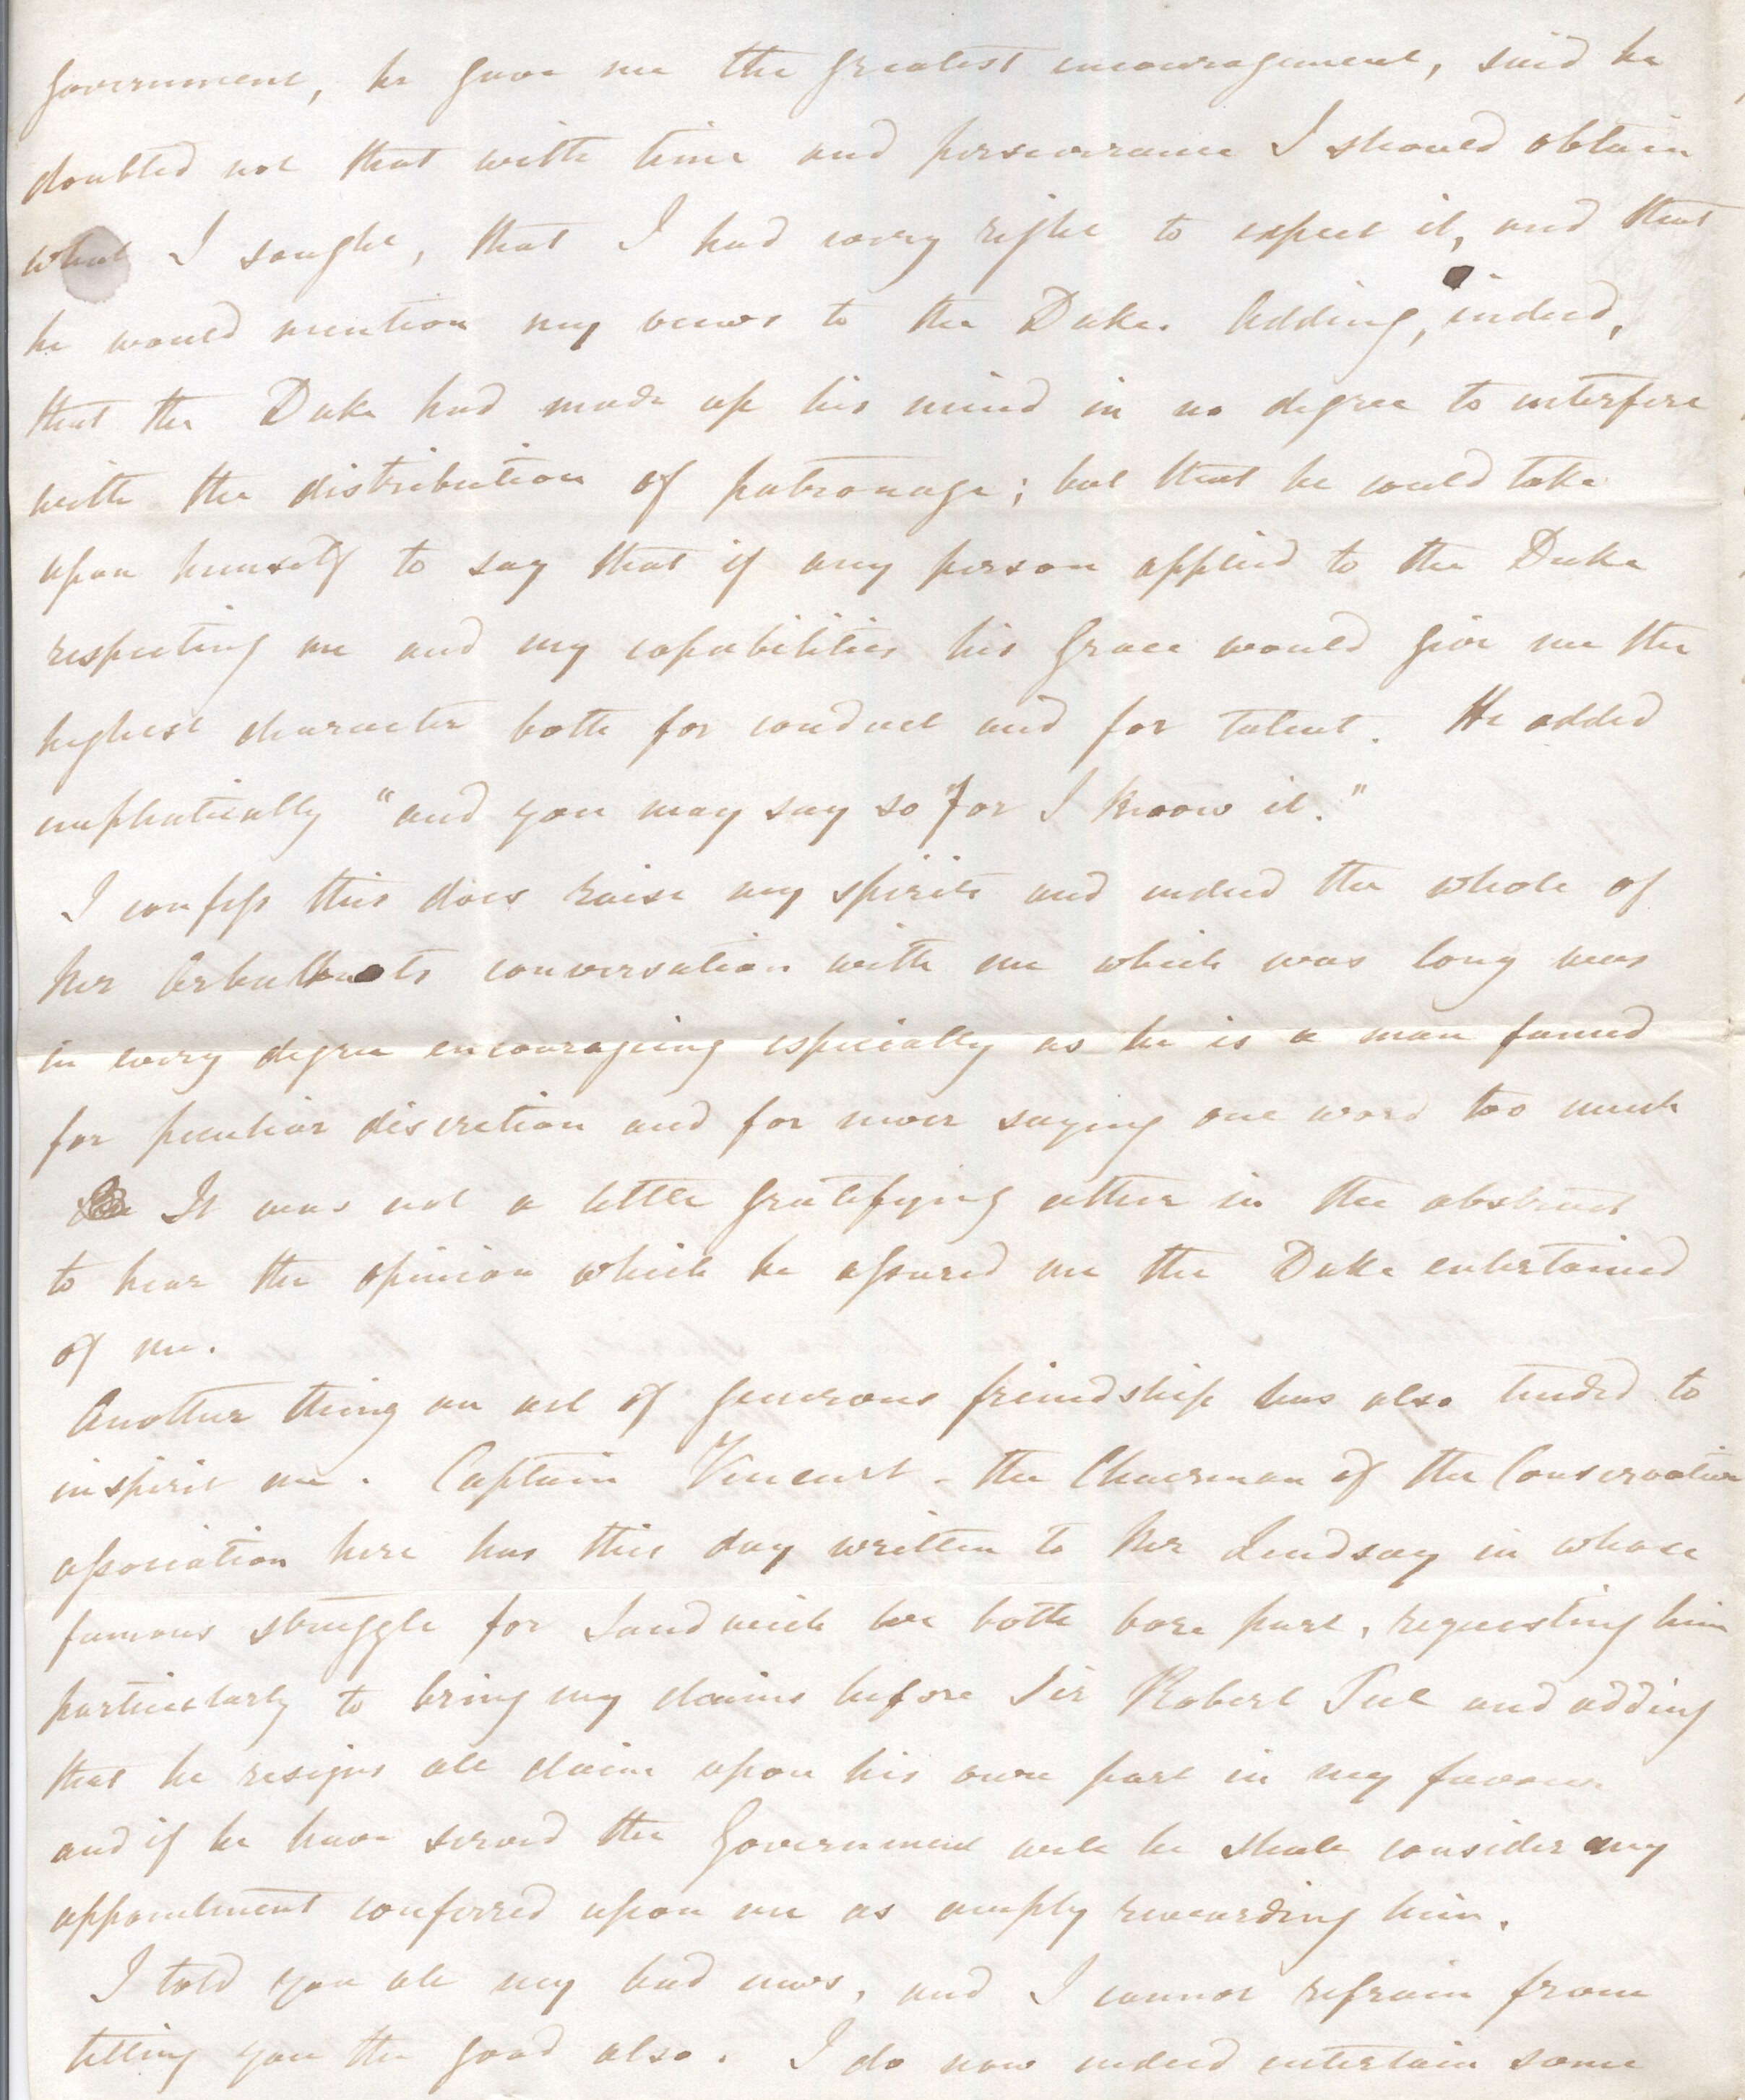 Government, he gave me the greatest encouragement, said he
doubted not that with time and perseverance I should obtain
what I sought, that I had every right to expect it, and that
he would mention my views to the Duke. Adding, indeed,
that the Duke had made up his mind in no degree to interfere
with the distribution of patronage; but that he could take
upon himself to say that if any person applied to the Duke
respecting me and my capabilities his Grace would give me the
highest character both for conduct and for talent. He added
emphatically "and you may say so for I know it."
I confess this does raise my spirits and indeed the whole of
Mr Arbuthnots conversation with me which was long was
in every degree encouraging especially as he is a man famed
for peculiar discretion and for never saying one word too much
It was not a little gratifying either in the abstract
to hear the opinion which he assured me the Duke entertained
of me.
Another thing an act of generous friendship has also tended to
inspirit me. Captain Vincent - the Chairman of the Conservative
association here has this day written to Mr Lindsay in whose
famous struggle for Sandwich we both bore part, requesting him
particularly to bring my claims before Sir Robert Peel and adding
that he resigns all claim upon his own part in my favour
and if he have served the Government well he shall consider any
appointment conferred upon me as amply rewarding him.
I told you all my bad news, and I cannot refrain from
telling you the good also. I do now indeed entertain some